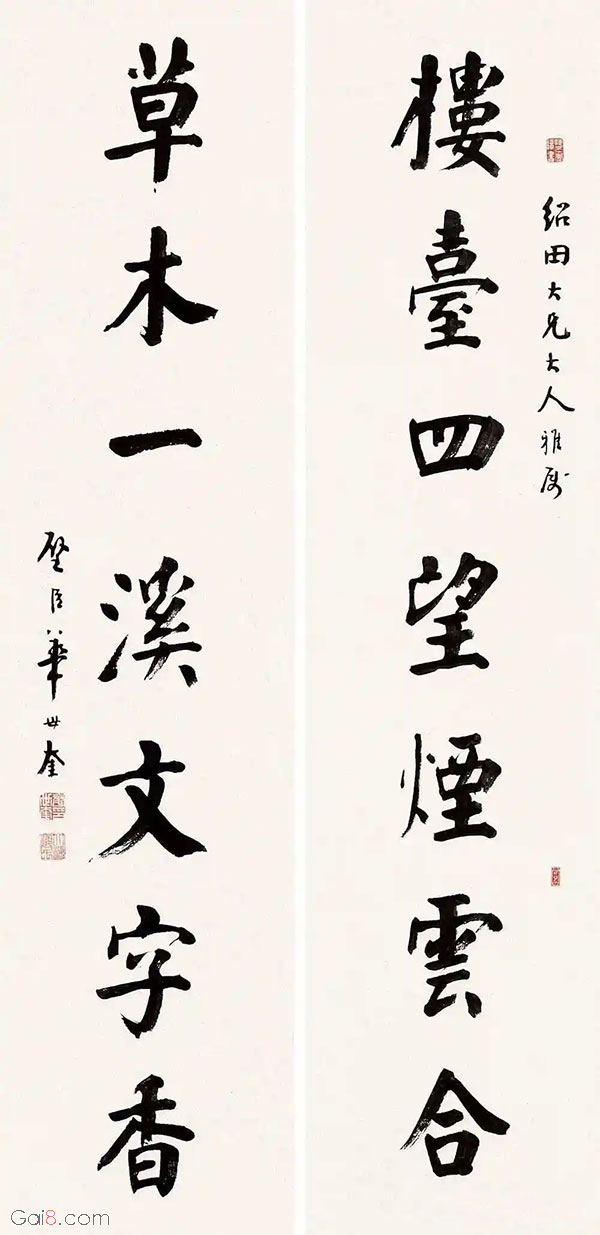 紹田大兄大人雅屬
樓臺四望煙雲合
草木一溪文字香
璧臣華世奎
Gai8.com